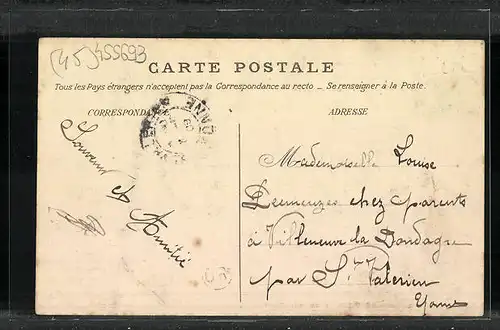 (45) 455693
CARTE POSTALE
Tous les Pays étrangers n'acceptent pas la Correspondance au recto _ Se renseigner à la Poste.
CORRESPONDANCE
ADRESSE
Souvenir et Amitié
Mademoiselle Louise
chez parents
à Villeneuve la Dondagre
par St Valerien
Yonne